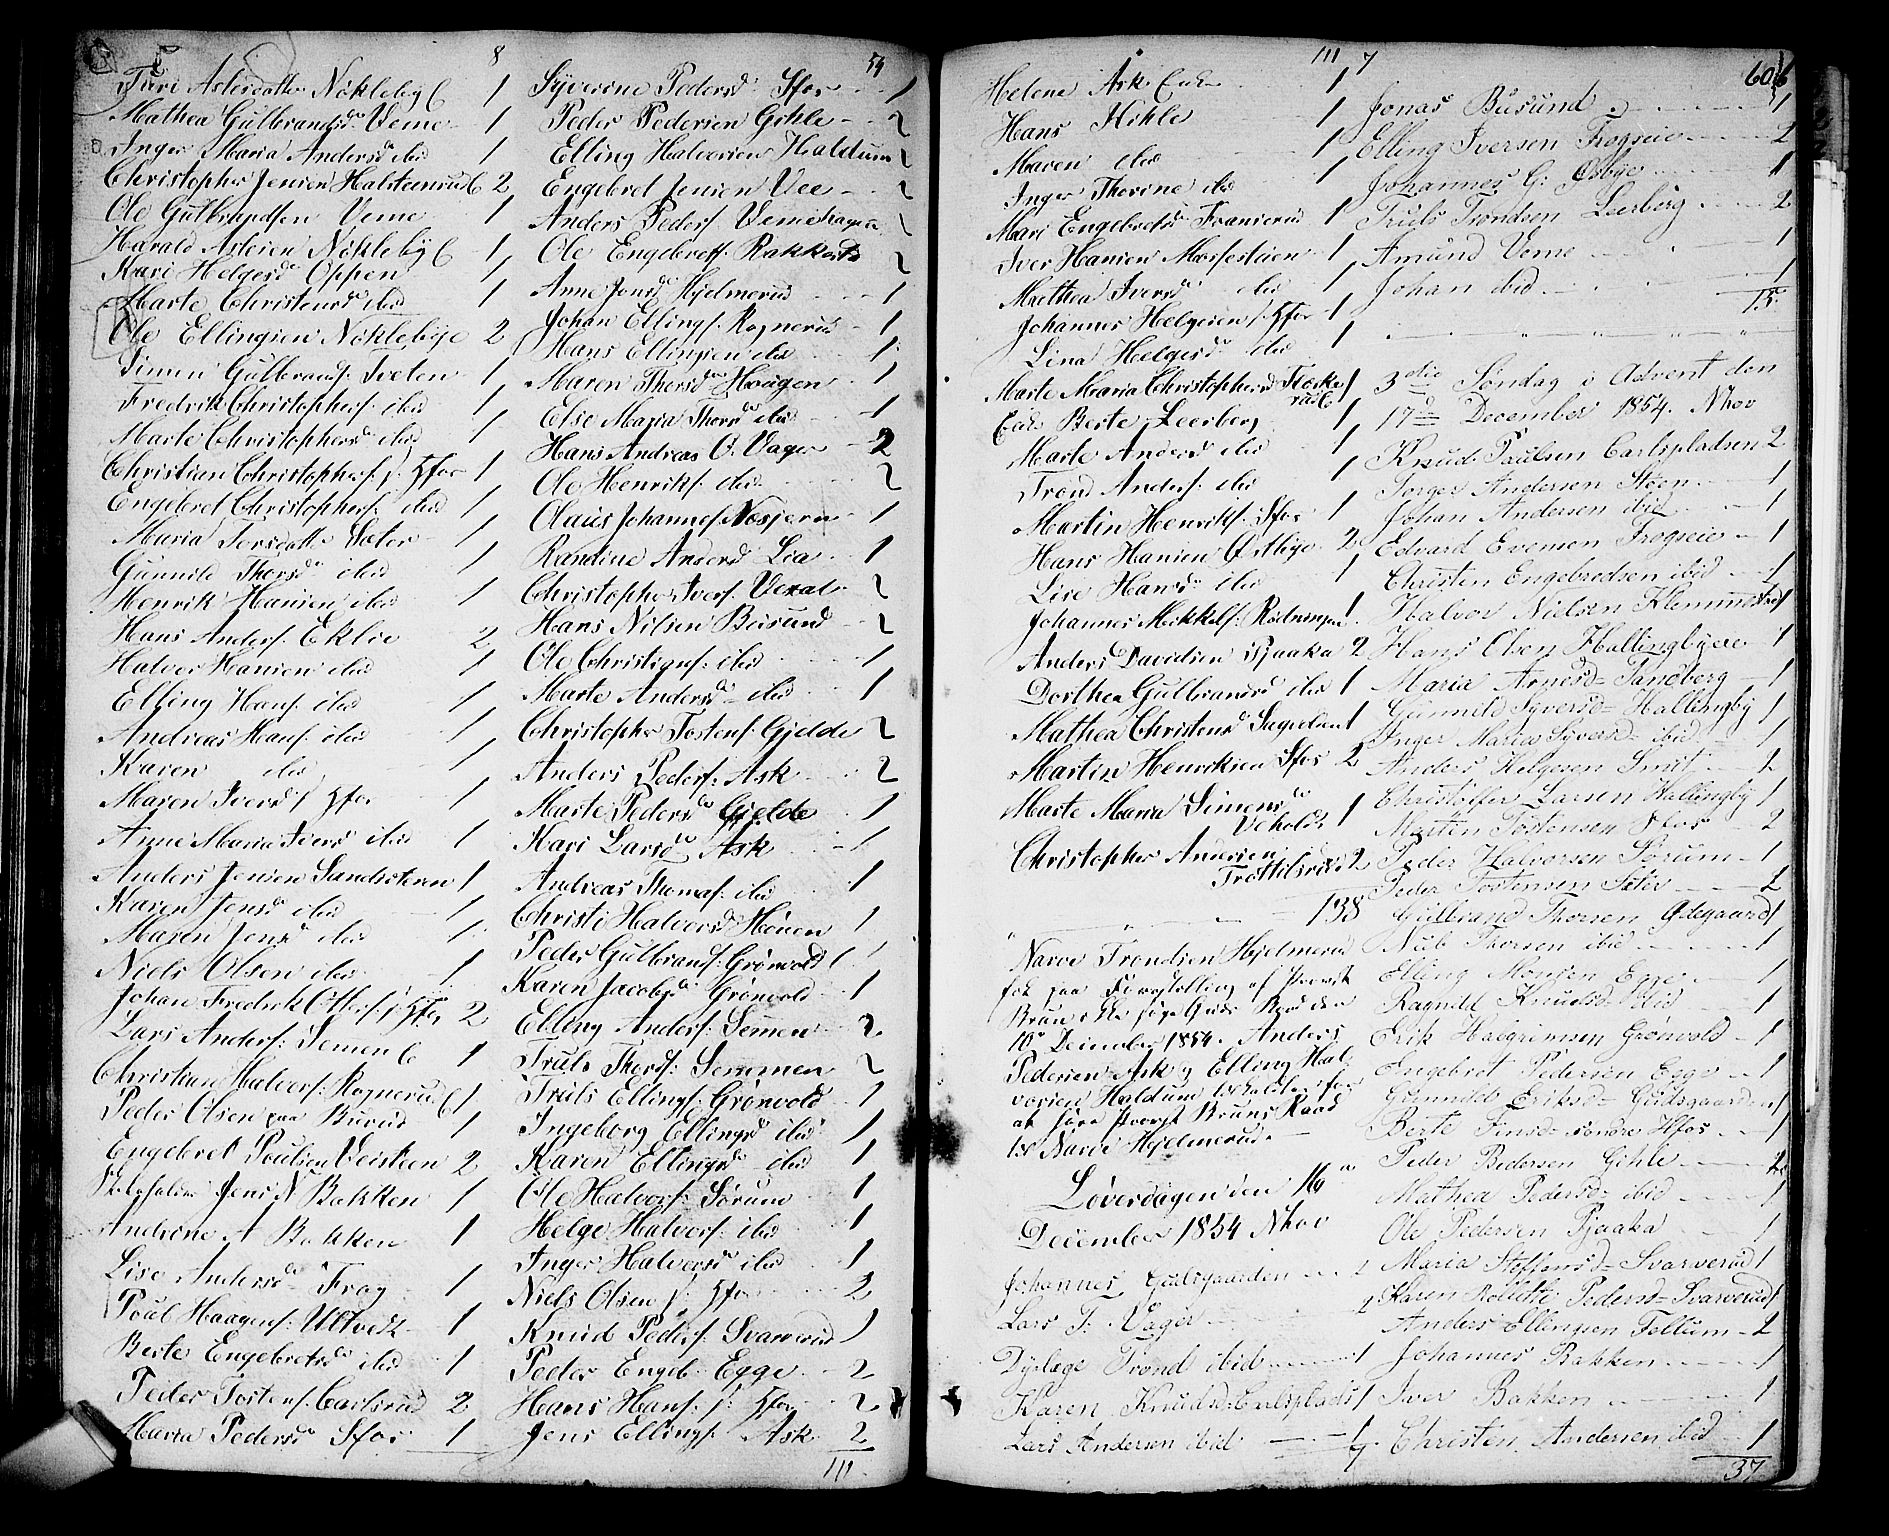 8
Turi Aslesdatter Nökleby E 1
Mathea Gulbrandsd. Veme 1
Inger Maria Andersd. ibid 1
Christopher Jensen Halsteenrud E 2
Ole Gulbrandsen Veme 1
Harald Aslesen Nökleby E 1
Kari Helgesd. Oppen 1
Marte Christensd. ibid 1
Ole Ellingsen Nöklebye 2
Simen Gulbrands. Tveten 1
Fredrik Christophers. ibid 1
Marte Christophersd. ibid 1
Christian Christophers. s: Hfos 1
Engebret Christophers. ibid 1
Maria Torsdatter Sæter 1
Gunnild Thorsd. ibid 1
Henrik Hansen ibid 1
Hans Anders. Eklie 2
Halvor Hansen ibid 1
Elling Hans. ibid 1
Andreas Hans. ibid 1
Karen ibid 1
Maren Iversd. s. Hfos 1
Anne Maria Iversd. ibid 1
Anders Jensen Sandsæteren 1
Karen Jensd. ibid 1
Maren Jensd. ibid 1
Niels Olsen ibid 1
Johan Fredrik Otters. s: Hfos 2
Lars Anders. Semen E 1
Christian Halvors. Rognerud E 1
Peder Olsen paa Burud E 1
Engebret Poulsen Veisteen 2
Jens N Bakken 1
Andrine A Bakken 1
Lise Andersd. Frog 1
Poul Haagens. Ultvedt 1
Berte Engebretsd. ibid 1
Peder Tostens. Carlsrud 2
Maria Pedersd. Hfos 1
59
Syverine Pedersd. Hfos 1
Peder Pedersen Gihle 2
Elling Halvorsen Haldum 2
Engebret Jensen Vee 2
Anders Peders. Vemehagen
Ole Engebrets. Rakkestd 2
Anne Jonsd. Hjelmerud 1
Johan Ellings. Rognerud 1
Hans Ellingsen ibid 1
Maren Thorsd. Haugen 1
Else Maria Thorsd. ibid 1
Hans Andreas O. Vager 2
Ole Henriks. ibid 2
Olaus Johannes. Nosjern 1
Randine Andersd. Lia 1
Christopher Ivers. Vexal 2
Hans Nilsen Busund 2
Ole Christians. ibid 1
Marte Andersd. ibid 1
Christopher Tostens. Gjelde 2
Anders Peders. Ask 2
Marte Pedersd. Gjelde 1
Kari Larsd. Ask 1
Andreas Thomas. ibid 1
Christi Halvorsd. Houen 1
Peder Gulbrands. Grönvold 1
Karen Jacobsd. Grönvold 1
Elling Anders. Semen 2
Truls Thords. Semmen 2
Truls Ellings. Grönvold 1
Ingeborg Ellingsd. ibid 1
Karen Ellingsd. ibid 1
Ole Halvors. Sörum 1
Helge Halvors. ibid 1
Inger Halvorsd. ibid 1
Niels Olsen s: Hfos 2
Knud Peders. Svarverud 1
Peder Engeb. Egge 2
Hans Hans. s: Hfos 2
Jens Ellings. Ask 2
111
111
Helene Ask Enke 1
Hans Kihle 1
Maren ibid 1
Inger Thorine ibid 1
Mari Engebretsd. Fransrud 1
Iver Hansen Mosesteien 1
Mathea Iversd. ibid 1
Johannes Helgesen s. Hfos 1
Lina Helgesd. ibid 1
Marte Maria Christophersd. Flaske
rud E 1
Enke Berte Leerberg 1
Marte Andersd. ibid 1
Trond Anders. ibid 1
Martin Henriks. Hfos 1
Hans Hansen Østbye 2
Lise Hansd. ibid 1
Johannes Mikkels. Rødningsen 1
Anders Davidsen Pjaaka 2
Dorthea Gulbrandsd. ibid 1
Mathea Christensd. 1
Martin Henriksen Hfos 2
Marte Maria Simensd.
Veholdt 1
Christopher Andersen
Trottelsrud 2
138
Narve Trondsen Hjelmerud
fik paa Forestilling af Provst
Bruun ikke söge Guds Bord den
10de December 1854. Anders
Pedersen Ask og Elling Hal
vorsen Haldum indkaldte for
at höre Provst Bruns Raad
til Narve Hjelmerud.
Löverdagen den 16de
December 1854 Nhov
Johannes Gulsgaarden 2
Lars T. Vager 2
Dyslæge Trond ibid 1
Karen Knudsd. Carlsplads 1
Lars Andersen ibid 1
7
7
60
Jonas Busund 1
Elling Iversen Frogseie 2
Johannes G: Øsbye 1
Truls Trondsen Leerberg 2
Amund Veme 1
Johan ibid 1
15
3die Söndag i Advent den
17de December 1854. Nhov
Knud Paulsen Carlspladsen 2
Torger Andersen Støen 1
Johan Andersen ibid 1
Edvard Evensen Frogseie 1
Christen Engebredsen ibid 1
Halvor Nielsen Klemmestad 1
Hans Olsen Hallingbyeie 1
Maria Arnesd. Tandberg 1
Gunnild Syversd. Hallingby 1
Inger Maria Syversd. ibid 1
Anders Helgesen Smit 2
Christoffer Larsen Hallingby 1
Morten Tostensen Hfos 2
Peder Halvorsen Sörum 1
Peder Tostensen Seter 2
Gulbrand Thorsen Ødegaard 1
Nub Thorsen ibid 1
Elling Monsen Egge 1
Ragnild Knudsd. ibid 1
Erik Halgrimsen Grönvold 1
Engebret Pedersen Egge 1
Gunnild Eriksd. Guldsgaarden 1
Berte Finsd. söndre Hfos 1
Peder Pedersen Gihle 2
Mathea Pedersd. ibid 1
Ole Pedersen Pjaaka 1
Maria Steffensd. Svarverud 1
Karen Roliette Pedersd. Svarverud 1
Anders Ellingsen Fellum 2
Johannes Bakken 1
Iver Bakken 1
Christen Andersen ibid 1
37